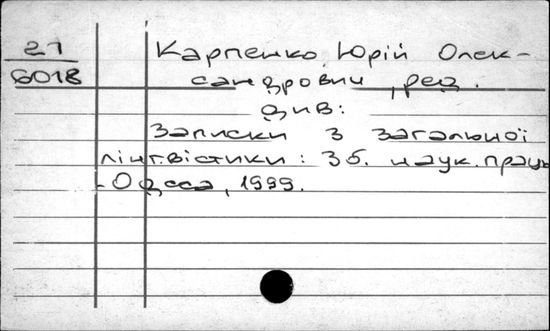 21
6018
Карпенко, Юрій Олек-
сандрович, ред.
див:
Записки з загальної
лінгвістики: Зб. наук. праць
- Одеса, 1999.